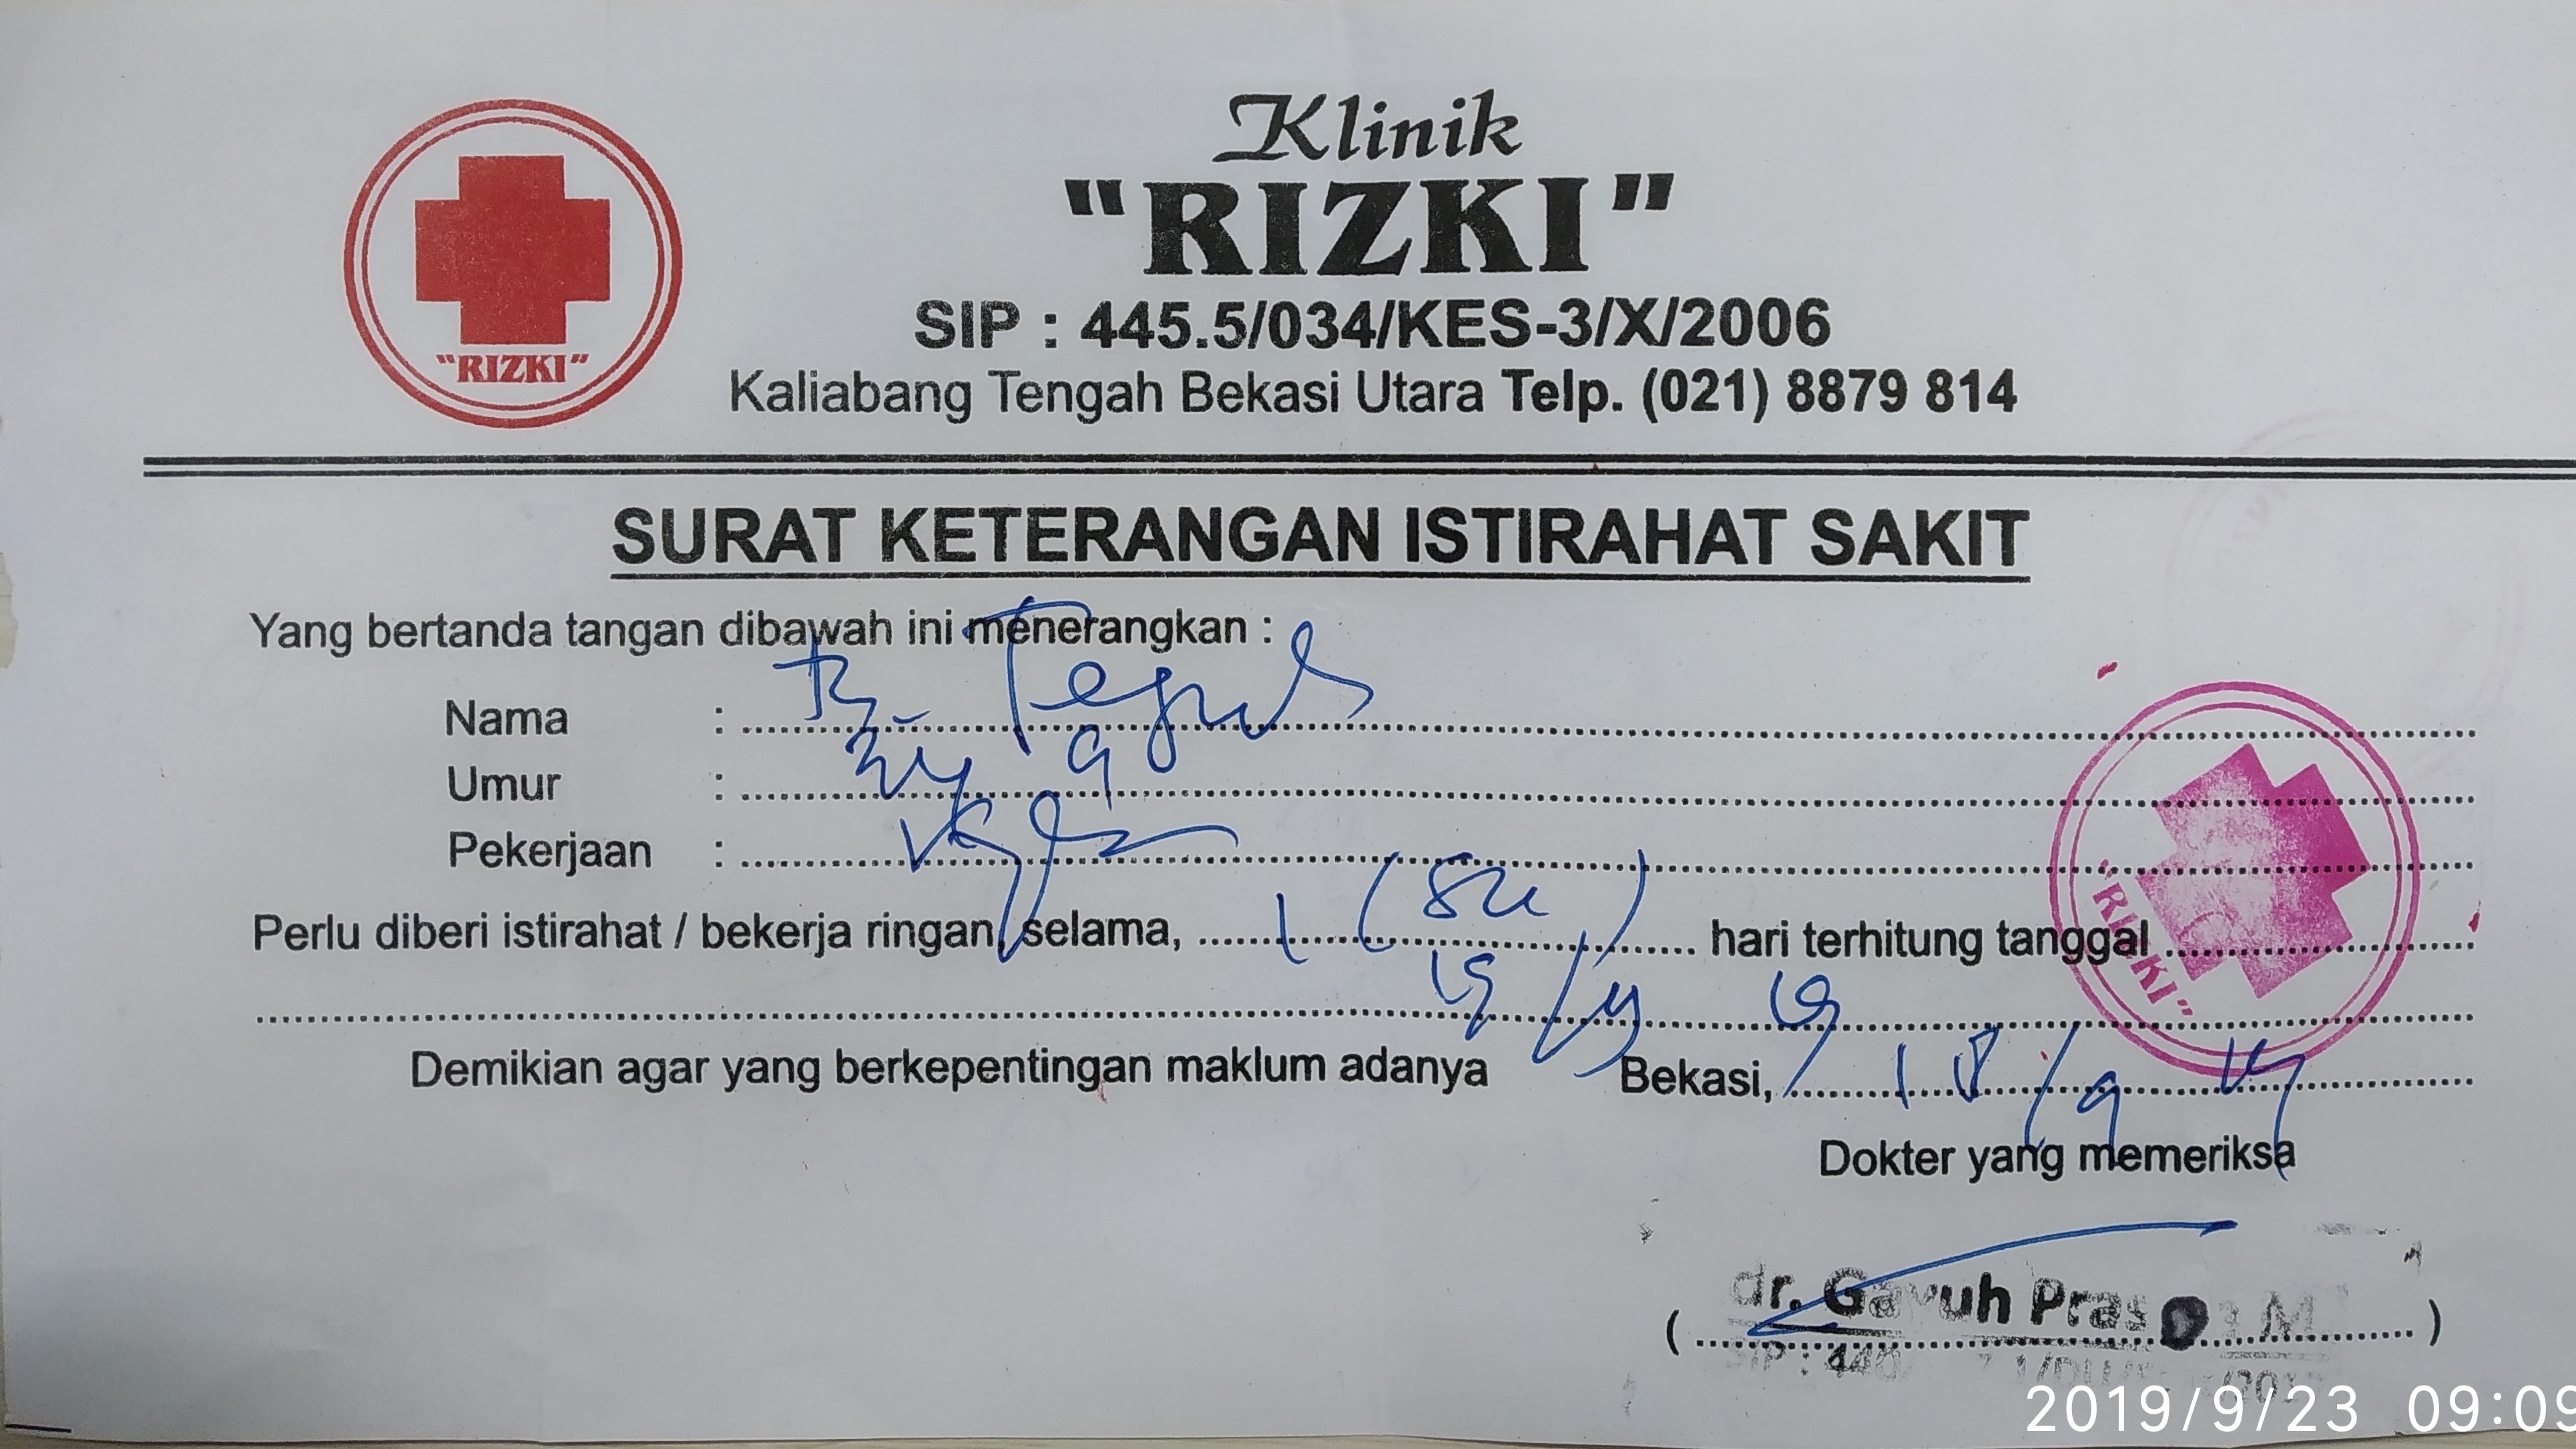 "RIZKI"
Klinik
"RIZKI"
SIP : 445.5/034/KES-3/X/2006
Kaliabang Tengah Bekasi Utara Telp. (021) 8879 814
SURAT KETERANGAN ISTIRAHAT SAKIT
Yang bertanda tangan dibawah ini menerangkan :
Nama : Teguh
Umur :
Pekerjaan :
Perlu diberi istirahat / bekerja ringan, selama, 1 ( ) hari terhitung tanggal
"RIZKI"
Demikian agar yang berkepentingan maklum adanya
Bekasi, 18/9 19
Dokter yang memeriksa
dr. Gayuh
( )
SIP :
2019/9/23 09:09